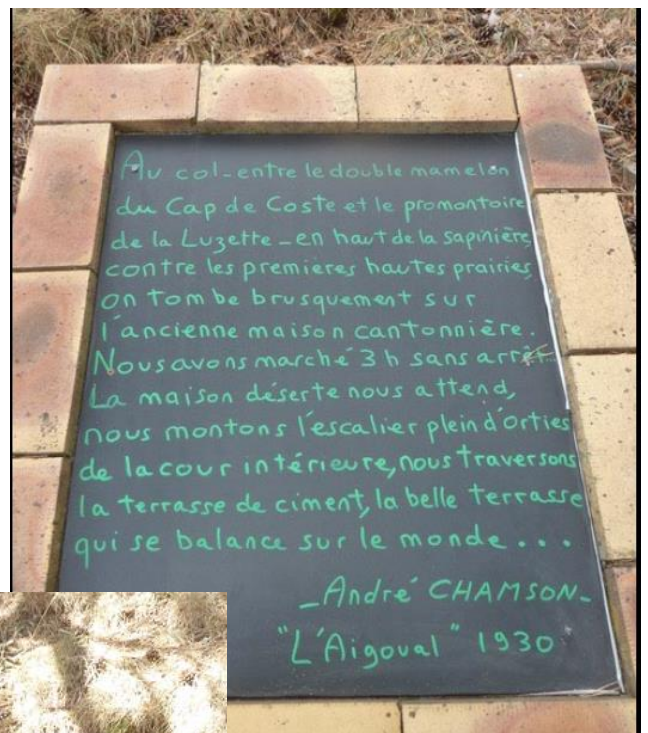 Au col-entre le double mamelon
du Cap de Coste et le promontoire
de la Luzette-en haut de la sapinière,
contre les premieres hautes prairies,
on tombe brusquement sur
l'ancienne maison cantonnière.
Nous avons marché 3 h sans arrêt
La maison déserte nous attend,
nous montons l'escalier plein d'orties
de la cour intérieure, nous traversons
la terrasse de ciment, la belle terrasse
qui se balance sur le monde...
-André CHAMSON-
"L'Aigoual" 1930